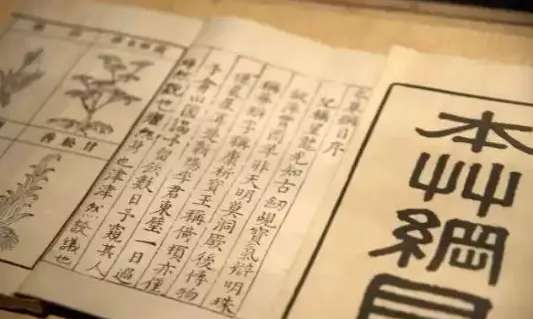 本艸綱目
本草綱目序
紀稱望龍光知古劒覘寶氣辯明珠
故萍實商羊非天明莫洞厥後博物
稱華辯字稱康析寶玉稱倚頓亦僅
僅晨星耳楚蘄陽李君東璧一日過
予弇山園謁予留飲數日予窺其人
睟然貌也癯然身也津津然譚議也